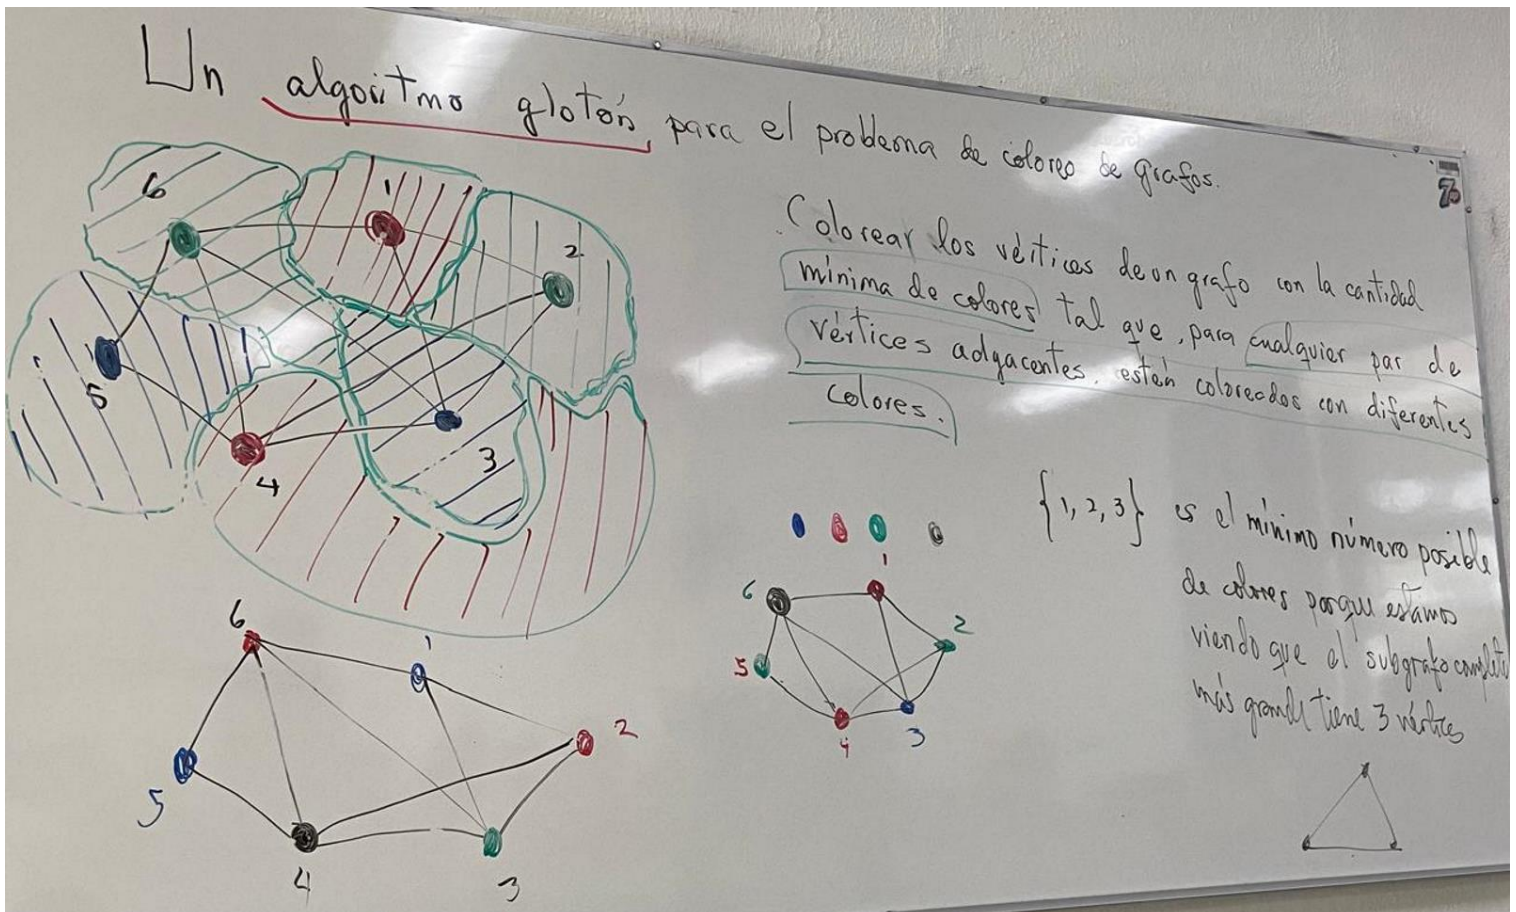 Un algoritmo glotón para el problema de coloreo de grafos.
Colorear los vértices de un grafo con la cantidad
mínima de colores tal que, para cualquier par de
vértices adyacentes, estén coloreados con diferentes
colores.
6
1
2
5
4
3
{1, 2, 3} es el mínimo número posible
de colores porque estamos
viendo que el subgrafo completo
más grande tiene 3 vértices
6
1
2
5
4
3
6
1
2
5
4
3